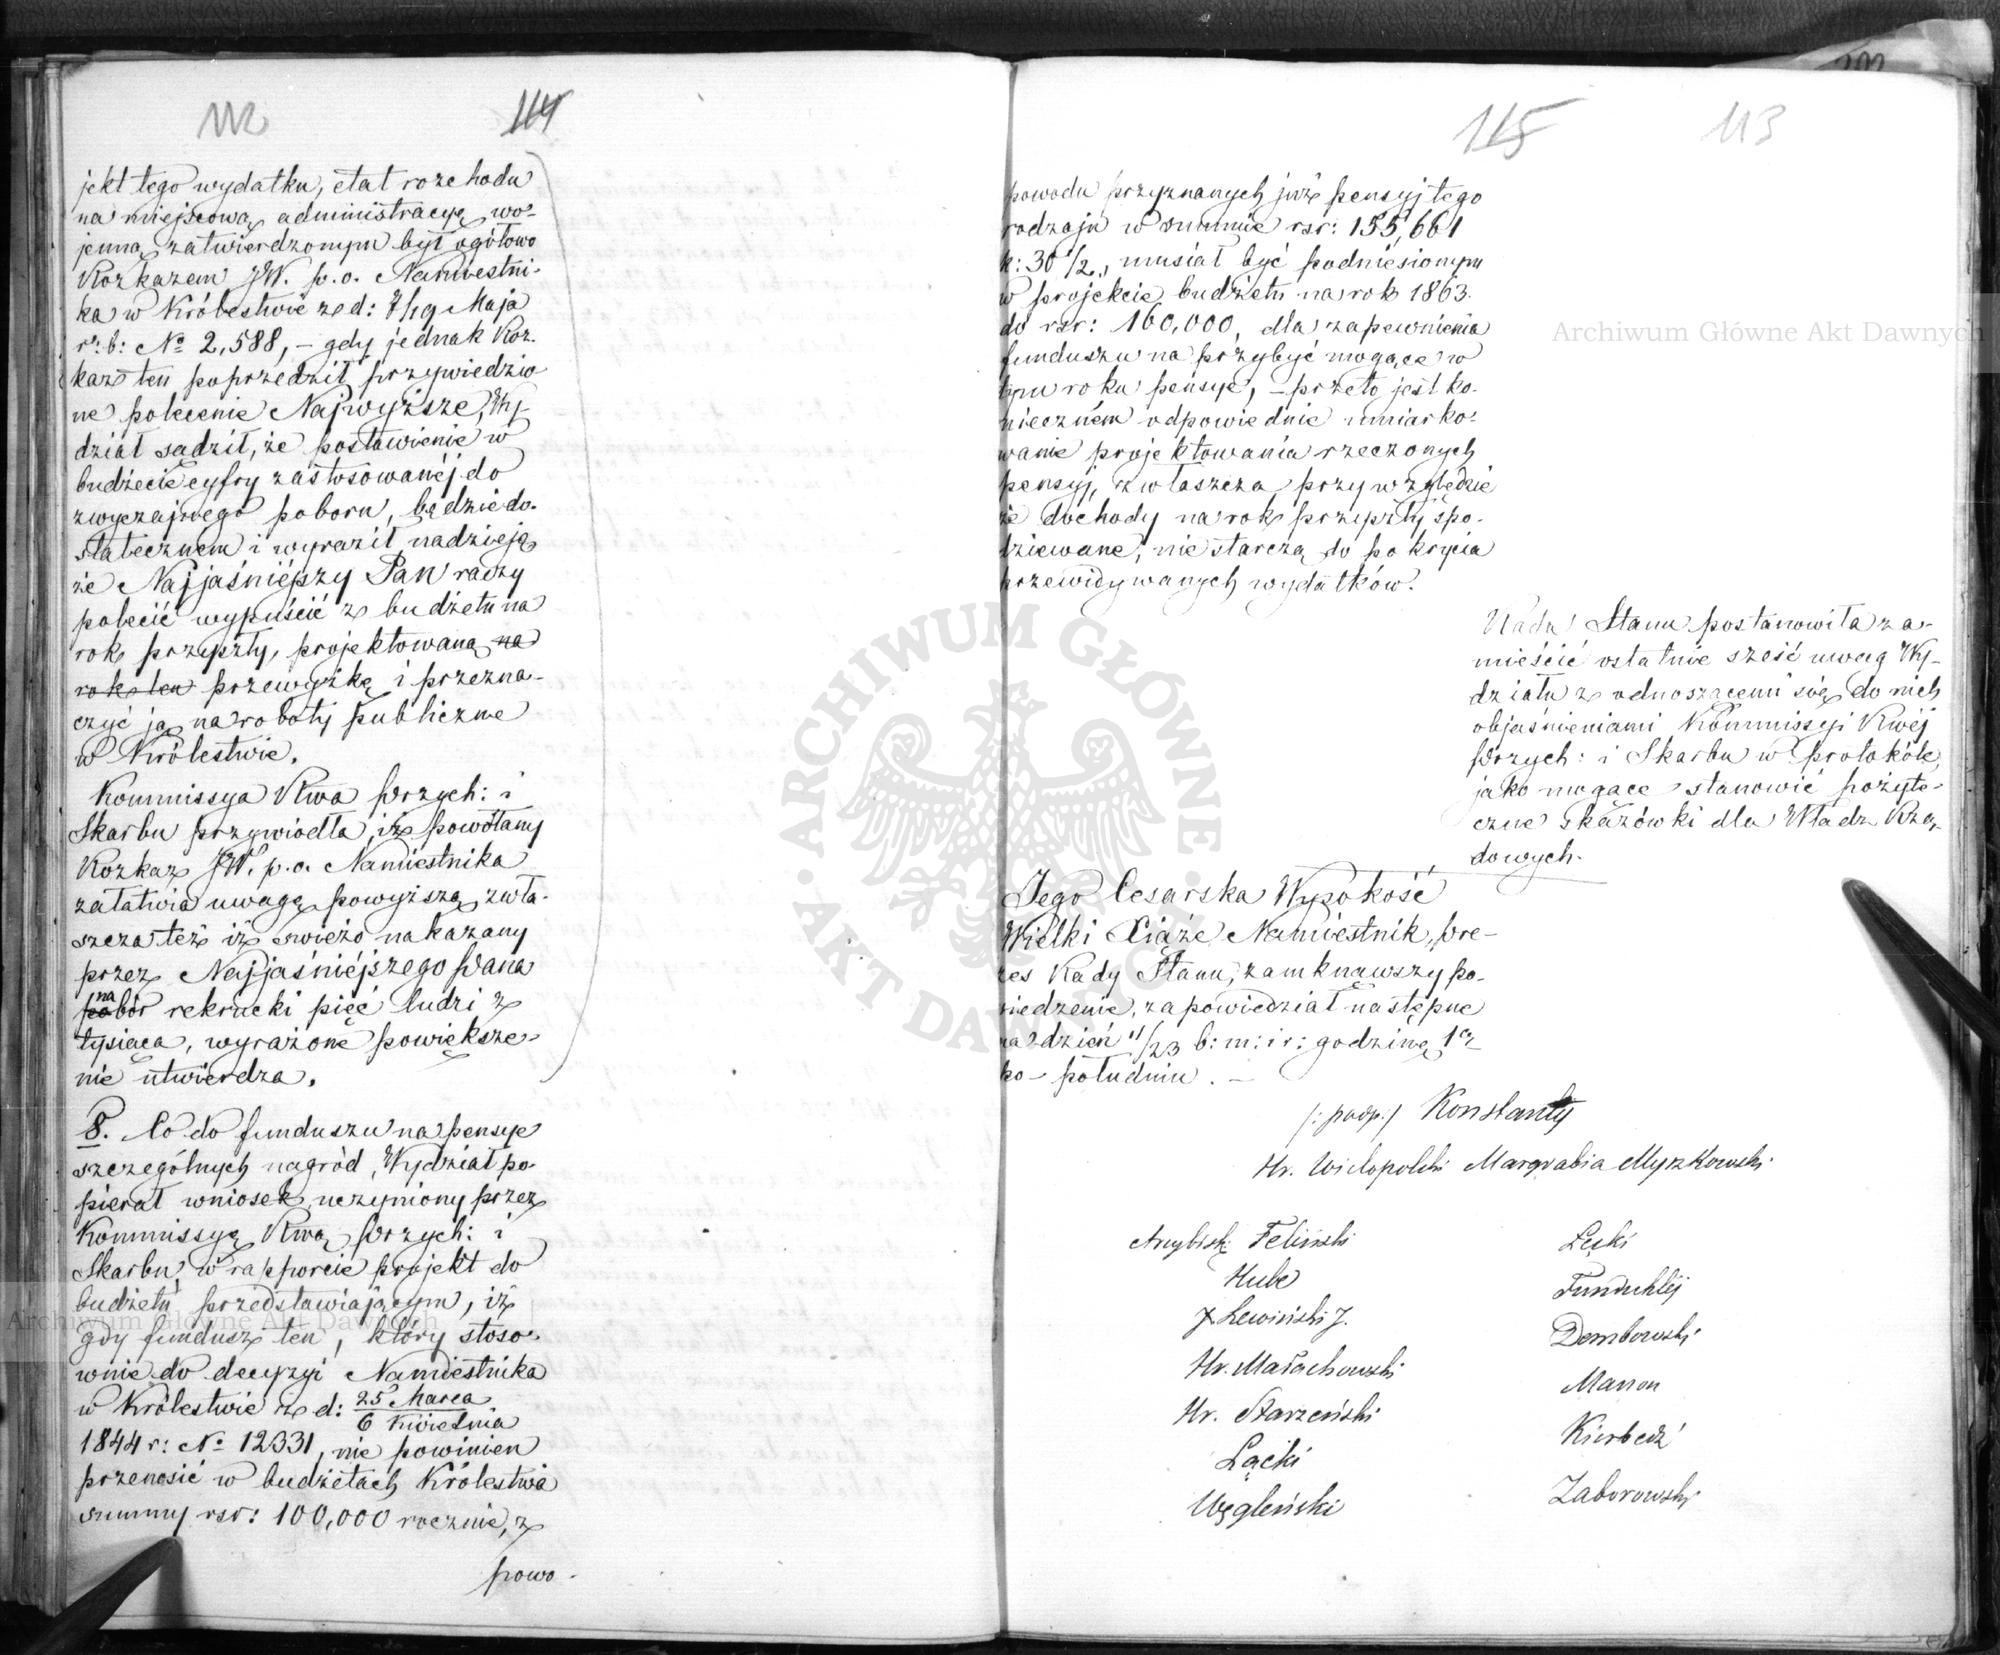 112 114
jekt tego wydatku, etat rozchodu
na miejscową administracyę wo-
jenną zatwierdzonym był ogółowo
Rozkazem JW. p. o. Namiestni-
ka w Królestwie z d: 7/19 Maja
r: b: No 2,588, – gdy jednak Roz-
kaz ten poprzedził przywiedzio
ne polecenie Najwyższe, Wy-
dział sądził, że postawienie w
budżecie cyfry zastosowanéj do
zwyczajnego poboru, będzie do-
statecznem i wyraził nadzieję
że Najjaśniéjszy Pan raczy
polecić wypuścić z budżetu na
rok przyszły, projektowaną na
rok ten przewyżkę i przezna-
czyć ją na roboty publiczne
w Królestwie.
Kommissya Rwa Przych: i
Skarbu przywiodła, iż powołany
Rozkaz JW. p. o. Namiestnika
załatwia uwagę powyższą, zwła-
szcza też iż świeżo nakazany
przez Najjaśniéjszego Pana
na
pobór rekrucki pięć ludzi z
tysiąca, wyrażone powiększe-
nie utwierdza.
8. Co do funduszu na pensye
szczególnych nagród, Wydział po-
pierał wniosek uczyniony przez
Kommissyę Rwą Przych: i
Skarbu, w rapporcie projekt do
budżetu przedstawiającym, iż
gdy fundusz ten, który stoso-
wnie do decyzyi Namiestnika
w Królestwie z d: 25 Marca
6 Kwietnia
1844 r: No 12331, nie powinien
przenosić w budżetach Królestwa
summy rsr: 100,000 rocznie, z
powo-
115 113
powodu przyznanych już pensyj tego
rodzaju w summie rsr: 155,661
k: 30 1/2, musiał być podniesionym
w projekcie budżetu na rok 1863.
do rsr: 160,000, dla zapewnienia
funduszu na przybyć mogące w
tym roku pensye, – przeto jest ko-
niecznem odpowiednie umiarko-
wanie projektowania rzeczonych
pensyj, zwłaszcza przy względzie
że dochody na rok przyszły spo-
dziewane, nie starczą do pokrycia
przewidywanych wydatków.
Rada Stanu postanowiła za-
mieścić ostatnie sześć uwag Wy-
działu z odnoszącemi się do nich
objaśnieniami Kommissyi Rwéj
Przych: i Skarbu w protokóle,
jako mogące stanowić pożyte-
czne skazówki dla Władz Rzą-
dowych.
Jego Cesarska Wysokość
Wielki Xiąże Namiestnik, Pre-
zes Rady Stanu, zamknąwszy po-
siedzenie, zapowiedział następne
na dzień 11/23 b: m: i r: godzinę 1ą
po południu. –
/: podp:/ Konstanty
Hr. Wielopolski Margrabia Myszkowski
Arcybisk: Feliński
Hube
J. Lewiński J.
Hr. Małachowski
Hr. Starzeński
Łącki
Węgleński
Łęski
Funduklej
Dembowski
Kierbedź
Zaborowski
Archiwum Główne Akt Dawnych
Archiwum Główne Akt Dawnych
ARCHIWUM GŁÓWNE
AKT DAWNYCH